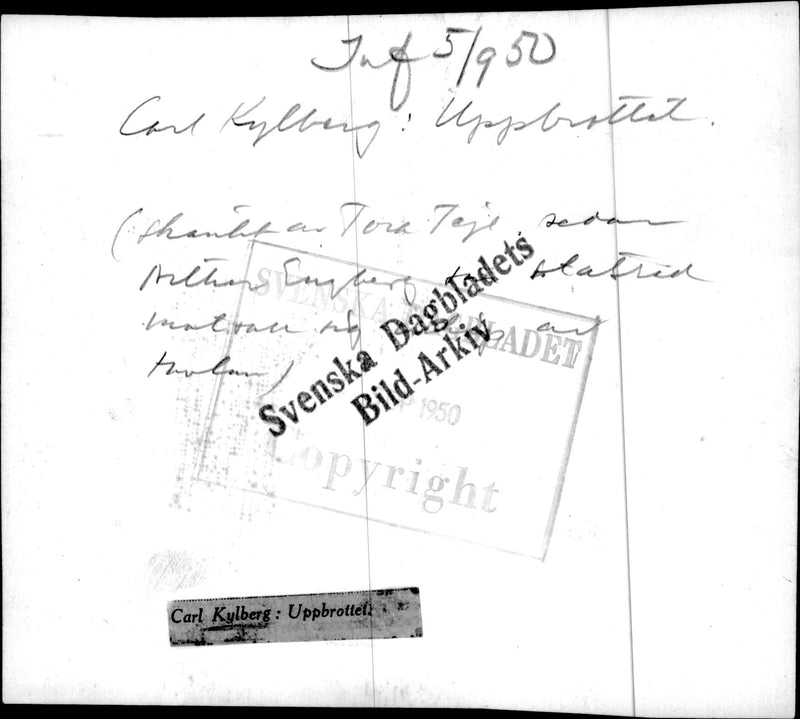 Inf 5/9 50
Carl Kylberg: Uppbrottet.
(skänkt av Tora Teje, sedan
Arthur Engberg statsråd
av
SVENSKA DAGBLADET
1950
Copyright
Svenska Dagbladets
Bild-Arkiv
Carl Kylberg: Uppbrottet.